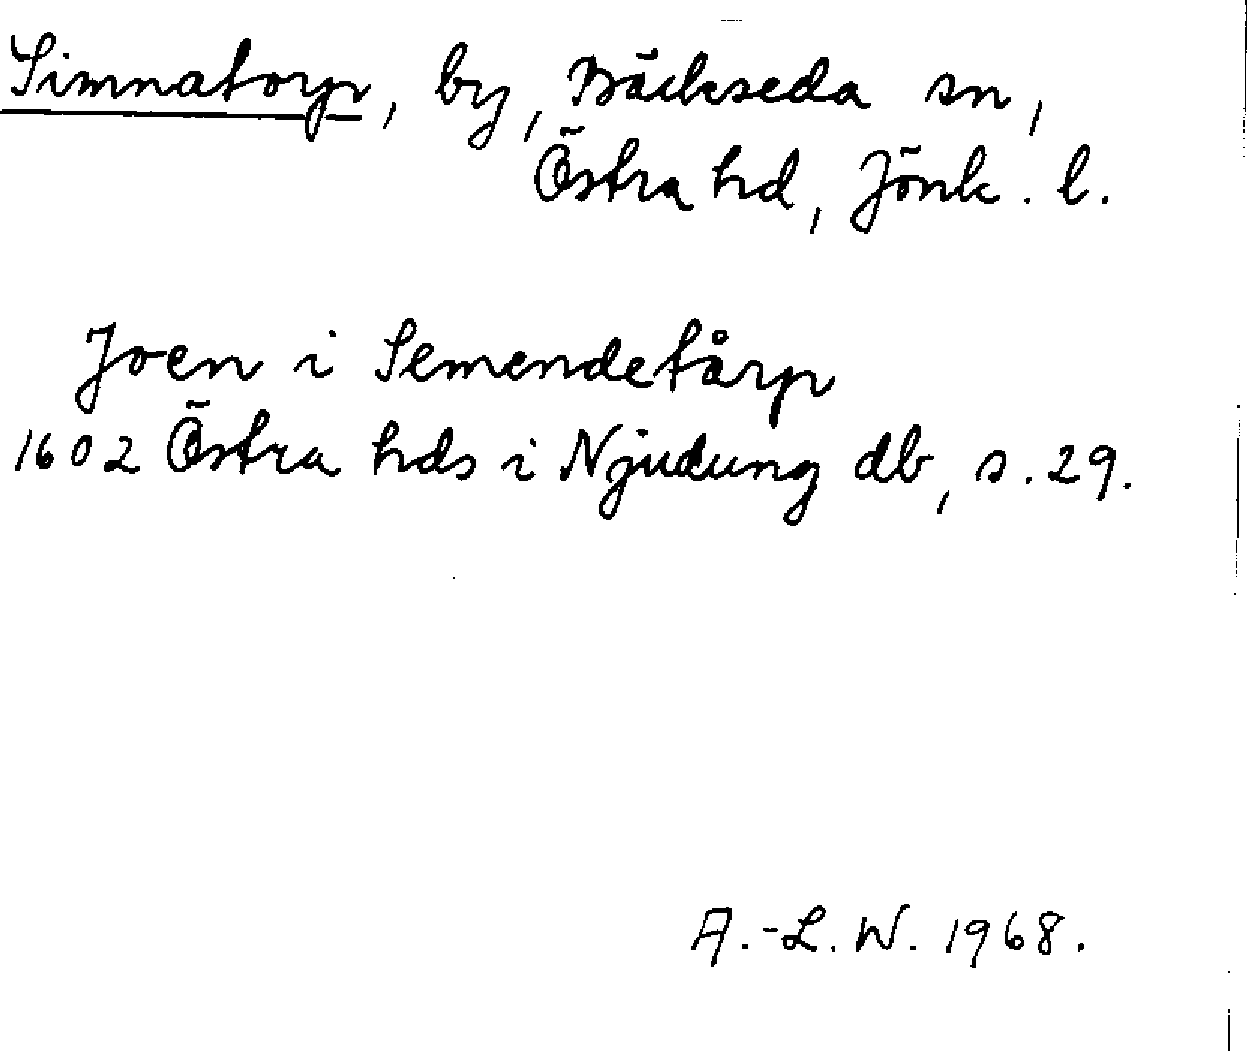 Simnatorp, by, Bäckseda sn,
Östra hd, Jönk. l.
Joen i Semendetårp
1602 Östra hds i Njudung db, s. 29.
A.-L. W. 1968.